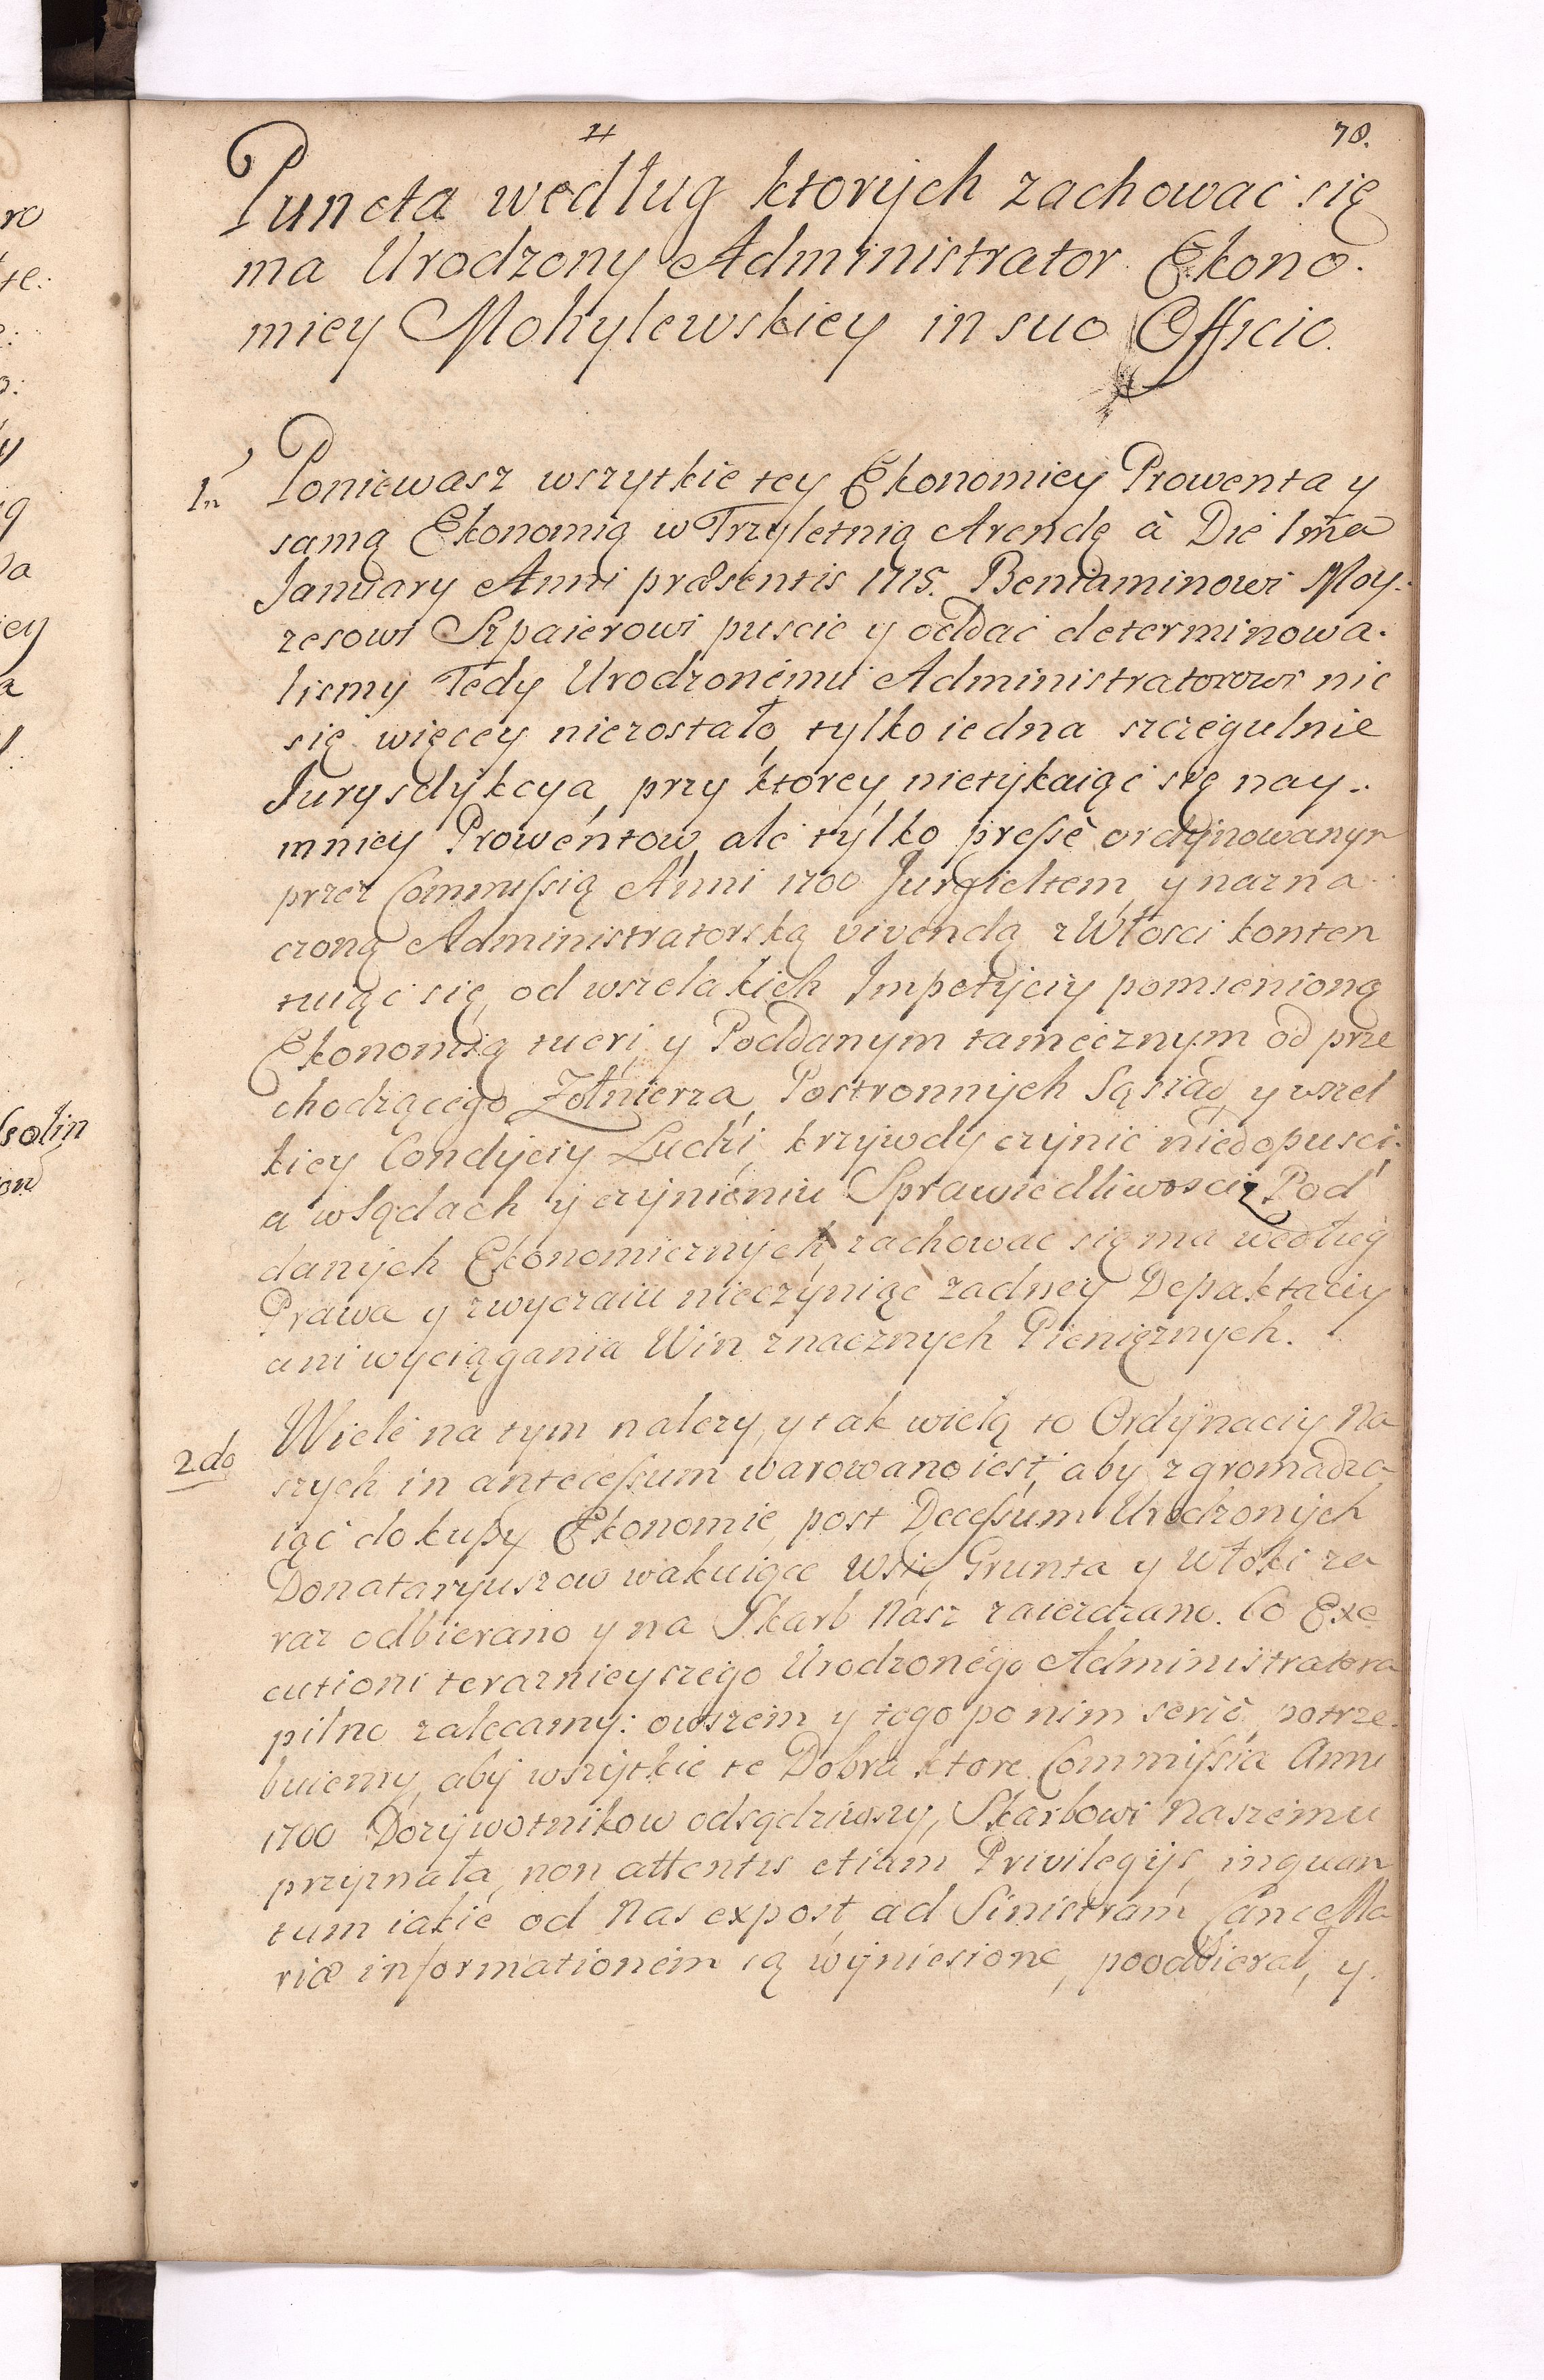 78.
Puncta według ktorych zachować się
ma Urodzony Administrator Ekono.
miey Mohylewskiey in suo Officio.
Poniewasz wszytkie tey Ekonomiey Prowenta y
samą Ekonomią w Trzyletnią Arendę à Die 1ma
January Anni præsentis 1715. Beniaminowi Moy.
zesowi Szpaierowi puscic y oddać determinowa.
lismy Tedy Urodzonemu Administratorowi nic
się więcey niezostało, tylko iedna szczegulnie
Jurysdykcya, przy ktorey, nietykaiąc się nay.
mniey Prowentow, ale tylko preſse ordynowanym
przez Commiſsią Anni 1700 Jurgieltem, y nazna
czoną Administratorską vivendą z Włosci konten
tuiąc się, od wszelakich Impetyciy pomienioną
Ekonomią tueri y Poddanym tamecznym od prze
chodzącego Zołnierza, Postronnych Sąsiad, y wszel
kiey Condyciy Ludzi, krzywdy czynić niedopusci.
a w Sądach y czynieniu Sprawiedliwosci z Pod
danych Ekonomicznych, zachowac się ma według
Prawa y zwyczaiu nieczyniąc zadney Depaktaciy
ani wyciągania Win znacznych Pieniężnych.
2do Wiele na tym nalezy, y tak wielą to Ordynaciy Na
szych in anteceſsum warowano iest, aby zgromadza
iąc do kupy Ekonomie, post Deceſsum Urodzonych
Donataryuszow wakuiące Wsie, Grunta y Włoki za
raz odbierano y na Skarb Nasz zaiezdzano. Co Exe
cutioni teraznieyszego Urodzonego Administratora
pilno zalecamy: owszem y tego po nim seriò potrze.
buiemy, aby wszytkie te Dobra ktore Commiſsia Anni
1700 Dozywotnikow odsądziwszy, Skarbowi Naszemu
przyznała, non attentis etiam Privilegijs, inquan
tum iakie od Nas expost, ad Sinistram Cancella
riæ informationem są wyniesione, poodbierał, y